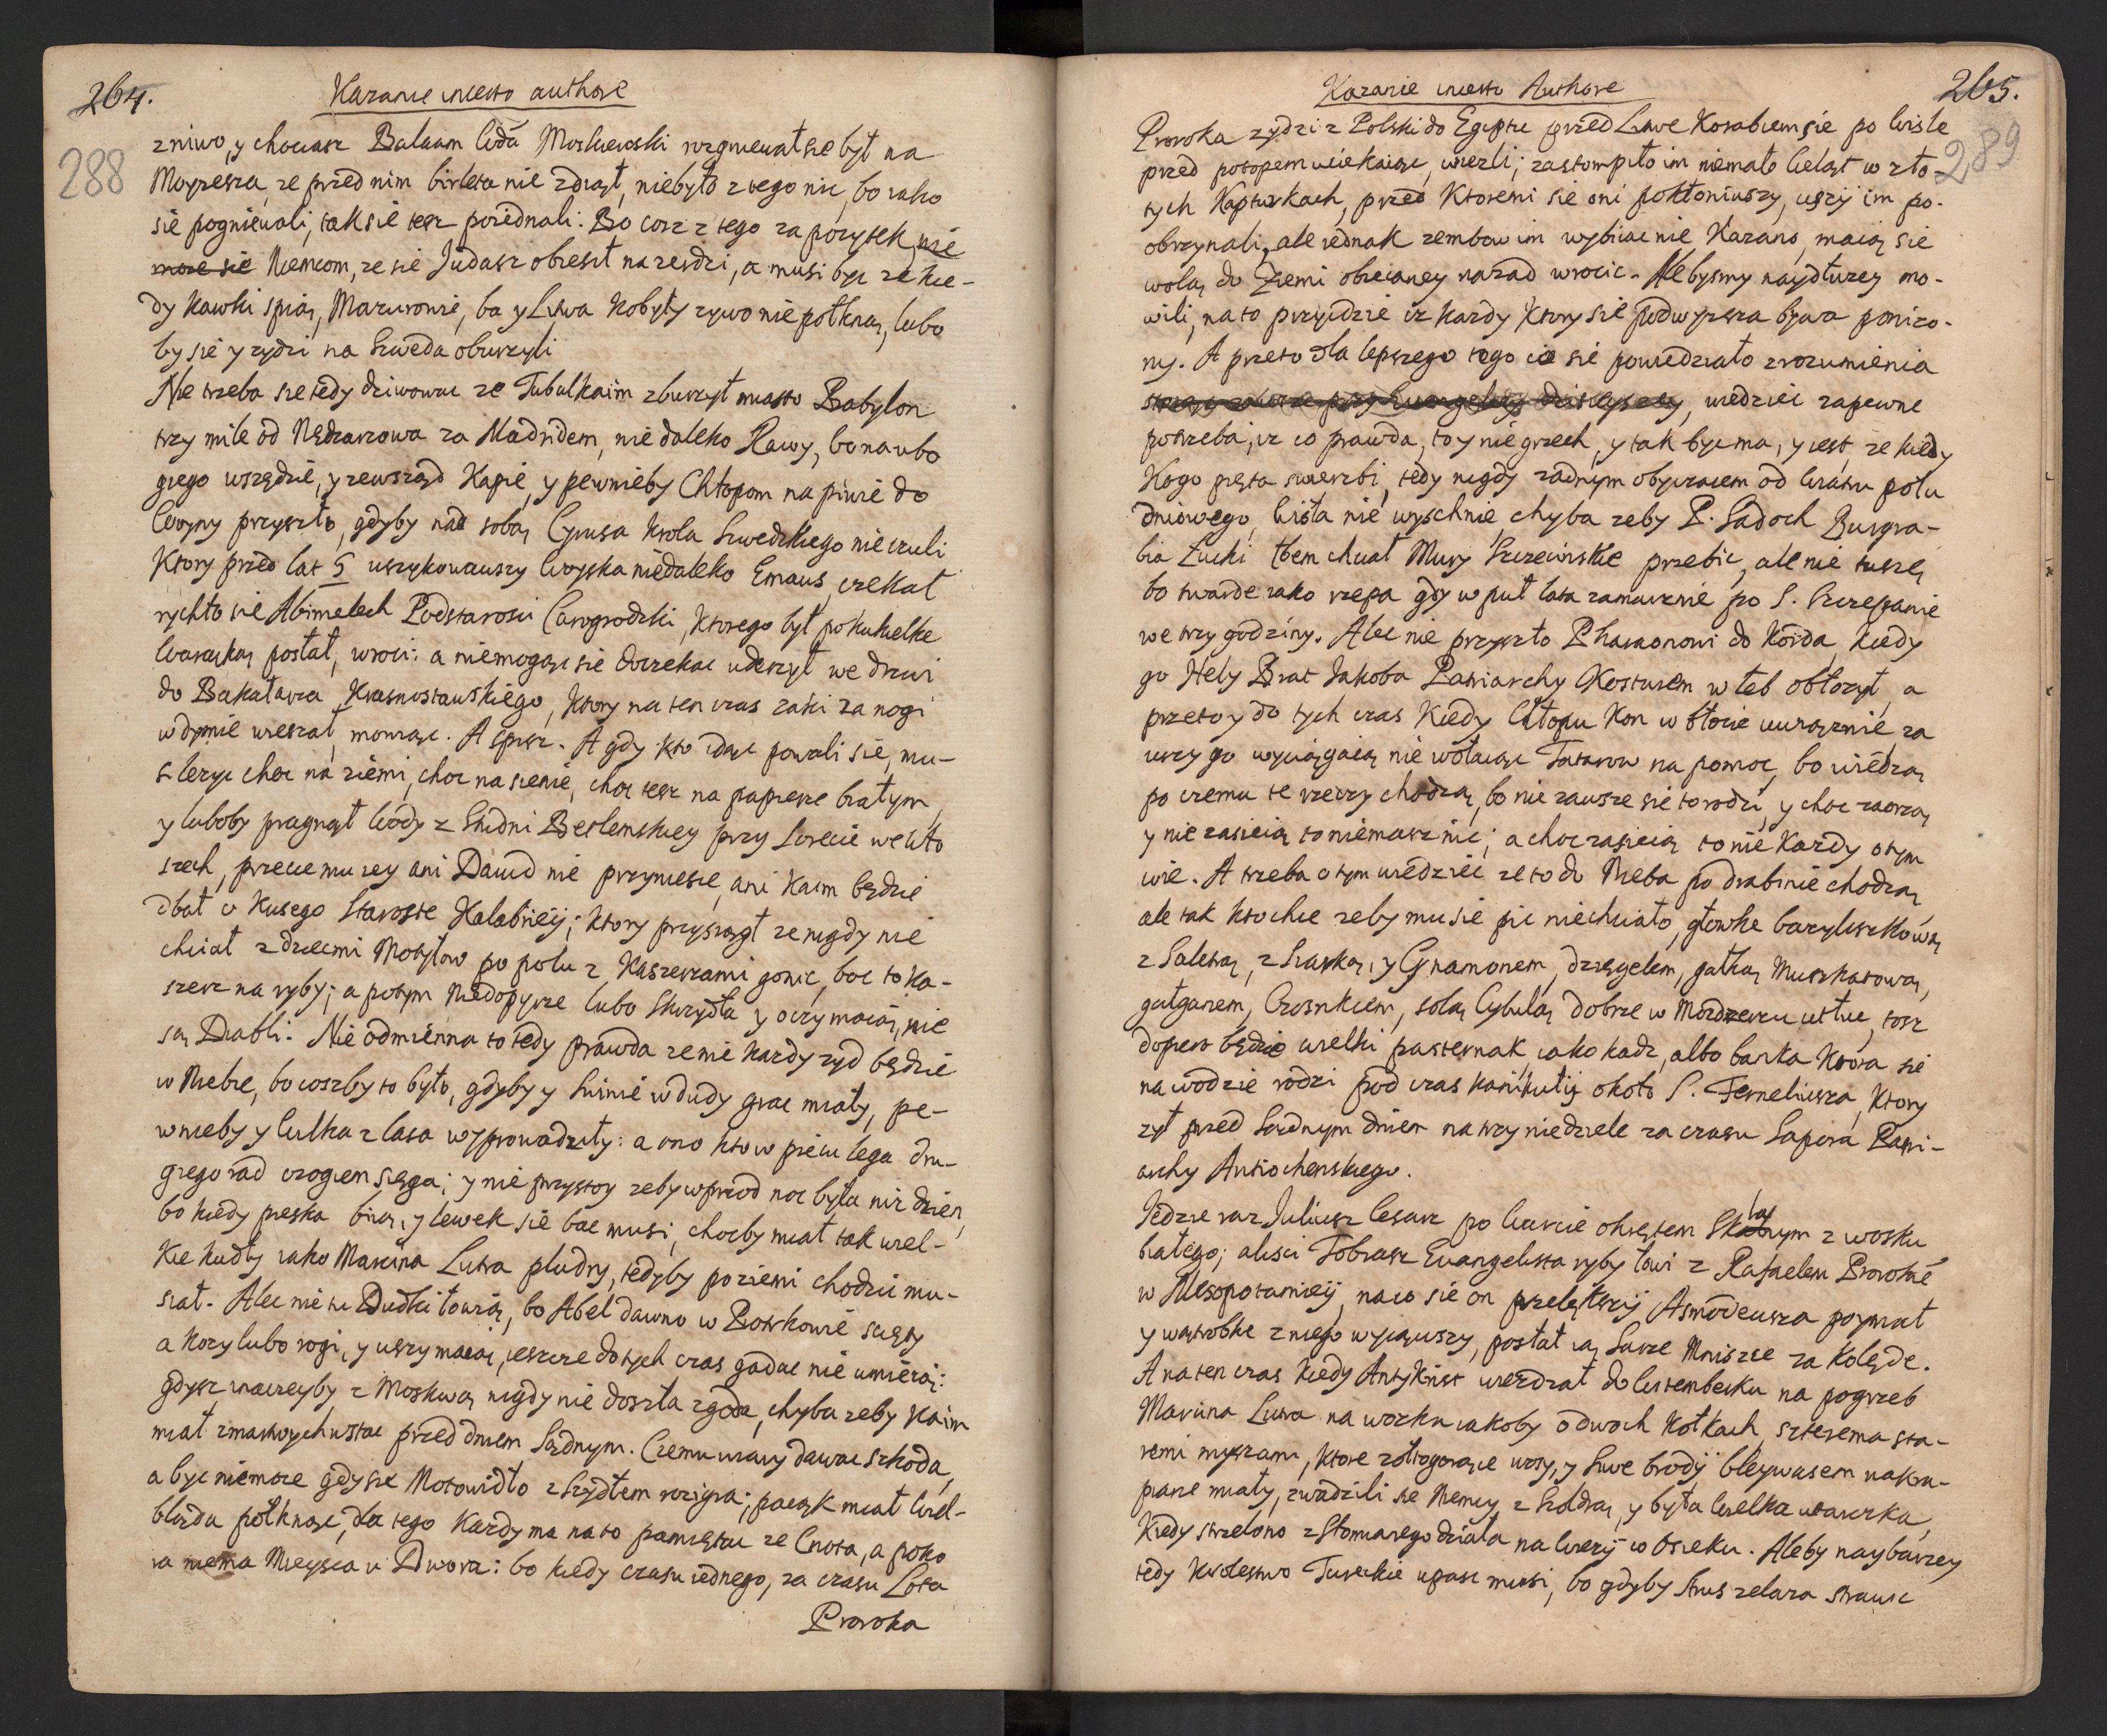 264.
Kazanie incerto authore
288
zniwo, y chociasz Balaam Woda Moskiewski rozgniewał się był na
Moyzesza, ze przed nim birleta nie zdiął, niebyło z tego nic, bo iako
się pogniewali, tak się tesz poiednali. Bo cosz z tego za pozytek, nie
moze się Niemcom, ze się Judasz obiesił na zerdzi, a musi byc ze kie-
dy kawki spią, Mazurowie, ba y Litwa kobyły zywo nie połkną, lubo
by się y zydzi na Szweda oburzyli
Nie trzeba się tedy dziwowac ze Tubalkaim zburzył miasto Babylon
trzy mile od Nędzarzowa za Madridem, nie daleko Rawy, bo na ubo
giego wszędzie, y zewsząd kapie, y pewnieby Chłopom na piwie do
Woyny przyszło, gdyby nad sobą Cyrusa Krola Szwedzkiego nie czuli
Ktory przed lat 5 uszykowawszy woyska niedaleko Emaus, czekał
rychło się Abimelech Podstarosci Carogrodzki, ktorego był po kukiełke
Warecką posłał, wroci: a niemogąc się doczekac uderzył we drzwi
do Bakałarza Krasnostawskiego, ktory na ten czas zaki za nogi
w dymie wieszał, mowiąc. A spisz. A gdy kto idąc powali się, mu-
si lezyc choc na ziemi, choc na sienie, choc tesz na papierze białym,
y luboby pragnął wody z Studni Betlemskiey przy Lorecie we Wło
szech, przecie mu iey ani Dawid nie przyniesie, ani Kaim będzie
dbał o Kusego Staroste Kalabriey; ktory przysiągł ze nigdy nie
chciał z dziecmi Motylow po polu z Kaszerzami gonic, boc to ka-
szerz na ryby; a potym Niedopyrze lubo skrzydła y oczy maią, nie
są Diabli. Nie odmienna to tedy prawda ze nie kazdy zyd będzie
w Niebie, bo coszby to było, gdyby y swinie w dudy grac miały, pe-
wnieby y wilka z lasa wyprowadziły: a ono kto w piecu lega dru-
giego rad ozogiem sięga; y nie przystoy zeby wprzod noc była niz dzien,
bo kiedy pieska biią, y lewek się bac musi, chocby miał tak wiel-
kie kudły iako Marcina Lutra pludry, tedyby po ziemi chodzic mu-
siał. Alec nie tu Dudki łowią, bo Abel dawno w Piotrkowie scięty
a kozy lubo rogi, y uszy maią, ieszcze do tych czas gadac nie umieią:
gdysz inaczeyby z Moskwą nigdy nie doszła zgoda, chyba zeby Kaim
miał zmartwychwstac przed dniem Sądnym. Czemu wiary dawac szkoda,
a byc niemoze gdy się Motowidło z Szydłem rozigra; paiąk miał Wiel-
błąda połknąc, dla tego kazdy ma na to pamiętac ze Cnota, a poko
ra niema Mieysca u Dwora: bo kiedy czasu iednego, za czasu Lota
Proroka
Kazanie incerto Authore
265.
289
Proroka zydzi z Polski do Egiptu przed Litwe Korabiem się po Wisle
przed potopem uciekaiąc, wiezli; zastompiło im niemało Cieląt w zło-
tych Kapturkach, przed ktoremi się oni pokłoniwszy, uszy im po-
obrzynali, ale iednak zembow im wybiiac nie kazano, maią się
wolą do Ziemi obiecaney nazad wrocic. Alebysmy naydłuzey mo-
wili, na to przyidzie iz kazdy ktory się podwyzsza bywa ponizo-
ny. A przeto dla lepszego tego co się powiedziało zrozumienia
wiedziec zapewne
potrzeba, iz co prawda, to y nie grzech, y tak byc ma, y iest, ze kiedy
Kogo pięta swierzbi, tedy nigdy zadnym obyczaiem od wiatru połu
dniowego, Wisła nie wyschnie, chyba zeby P. Sadoch Burgra-
bia Łucki łbem chciał Mury Szczecinskie przebic, ale nie tuszę
bo twarde iako rzepa gdy w puł lata zamarznie po S. Szczepanie
we trzy godziny. Alec nie przyszło Pharaonowi do korda, kiedy
go Hely Brat Jakoba Patriarchy Kosturem w łeb obłozył, a
przeto y do tych czas kiedy Chłopu kon w błocie uwiąznie za
uszy go wyciągaią nie wołaiąc Tatarow na pomoc, bo wiedzą
po czemu te rzeczy chodzą, bo nie zawsze się to rodzi, y choc zaorzą
y nie zasieią to niemasz nic; a choc zasieią to nie kazdy o tym
wie. A trzeba o tym wiedziec ze to do Nieba po drabinie chodzą
ale tak kto chce zeby mu się pic niechciało, głowke bazyliszkową
z Sałetrą, z Siarką, y Cynamonem, dzięgelem, gałką Muszkatową,
gałganem, Czosnkiem, solą Cybulą dobrze w Mozdzerzu utłuc, tosz
dopiero będzie wielki pasternak, iako kadz, albo barka ktora się
na wodzie rodzi pod czas kanikuły około S. Ferneliusza, ktory
zył przed Sądnym dniem na trzy niedziele za czasu Sapora Patri-
archy Antiochenskiego.
Jedzie raz Juliusz Cesarz po Warcie okrętem z wosku
białego; alisci Tobiasz Evangelista ryby łowi z Rafaelem Prorokie
w Mesopotamiey, na co się on przelększy Asmodeusza poymał
y wątrobke z niego wyiąwszy, posłał ią Sarze Mniszce za kolęde.
A na ten czas kiedy Antykrist wiezdzał do Wittembergku na pogrzeb
Marcina Lutra na wozku iakoby o dwoch kołkach sztyrema sta-
remi myszami, ktore zołtogorące uszy, y siwe brody bleywasem nakra-
piane miały, zwadzili się Niemcy z Szołdrą, y była wielka utarczka,
kiedy strzelono z słomianego działa na wiezy w Osieku. Aleby naybarzey
tedy Krolestwo Tureckie upasc musi, bo gdyby Strus zelaza strawic